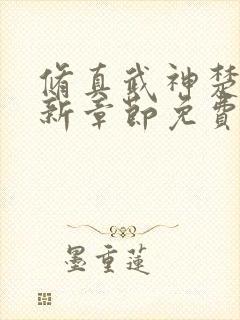 脩真武神楚
新章節免費
墨重蓮